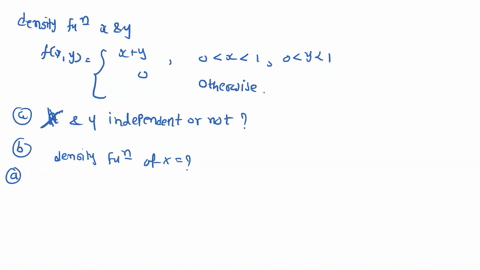 density fuⁿ x & y
f(x,y) = { x+y , 0<x<1, 0<y<1
0 otherwise.
ⓐ X & y independent or not ?
ⓑ density fuⁿ of x = ?
ⓐ